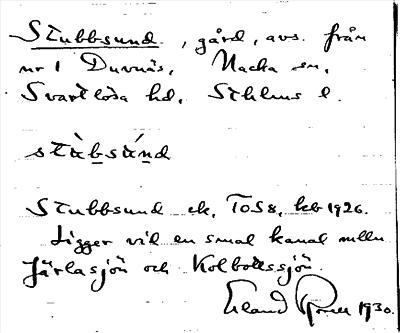 Stubbsund, gård, avs. från
nr 1 Duvnäs, Nacka sn,
Svartlösa hd, Sthlms l.
stùb̲sún̲d
Stubbsund ek. TOS8, kb 1926.
Ligger vid en smal kanal mellan
Järlasjön och Kolbottssjön
Erland 1930.